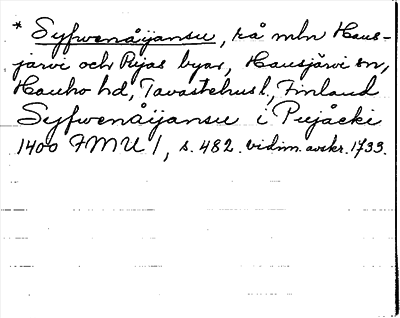 * Syfwenåijansu, rå mln Haus-
järvi och Ryas byar, Hausjärvi sn,
Hauho hd, Tavastehus l., Finland
Syfwenåijansu i Pujåcki
1400 FMU 1, s. 482. vidim. avskr. 1733.